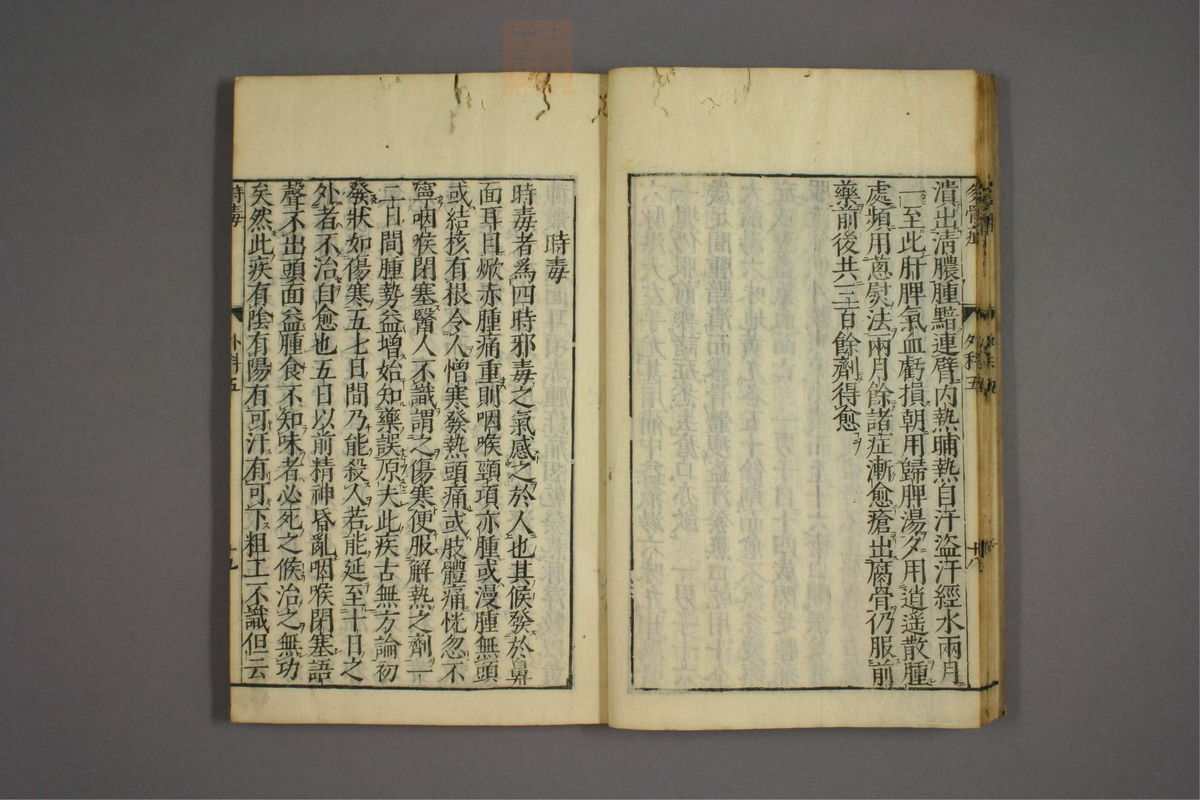 潰出清膿腫黯連臂內熱晡熱自汗盜汗經水兩月
一至此肝脾氣血虧損朝用歸脾湯夕用逍遥散腫
處頻用蔥熨法兩月餘諸症漸愈瘡出腐骨仍服前
藥前後共三百餘劑得愈
外科五
時毒
時毒者爲四時邪毒之氣感之於人也其候發於鼻
面耳目焮赤腫痛重則咽喉頸項亦腫或漫腫無頭
或結核有根令人憎寒發熱頭痛或肢體痛恍忽不
寧咽喉閉塞醫人不識謂之傷寒便服解熱之劑一
二日間腫勢益增始知藥誤原夫此疾古無方論初
發狀如傷寒五七日間乃能殺人若能延至十日之
外者不治自愈也五日以前精神昏亂咽喉閉塞語
聲不出頭面益腫食不知味者必死之候治之無功
矣然此疾有陰有陽有可汗有可下粗工不識但云
時毒
外科五
十九